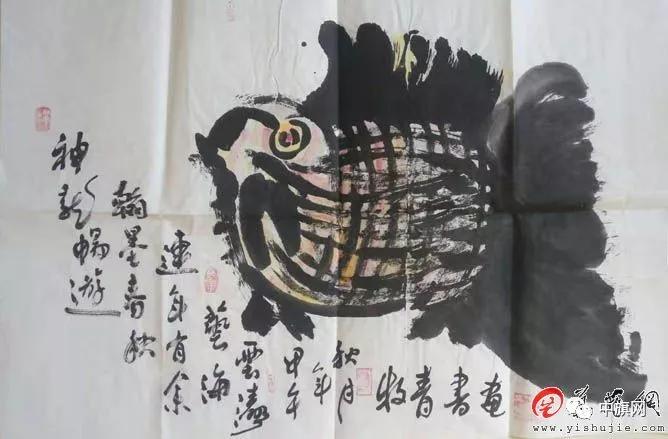 神龍暢游
翰墨春秋
連年有余
藝海
雲濤
甲午
年
秋月
牧青書畫
中旗网
www.yishujie.com